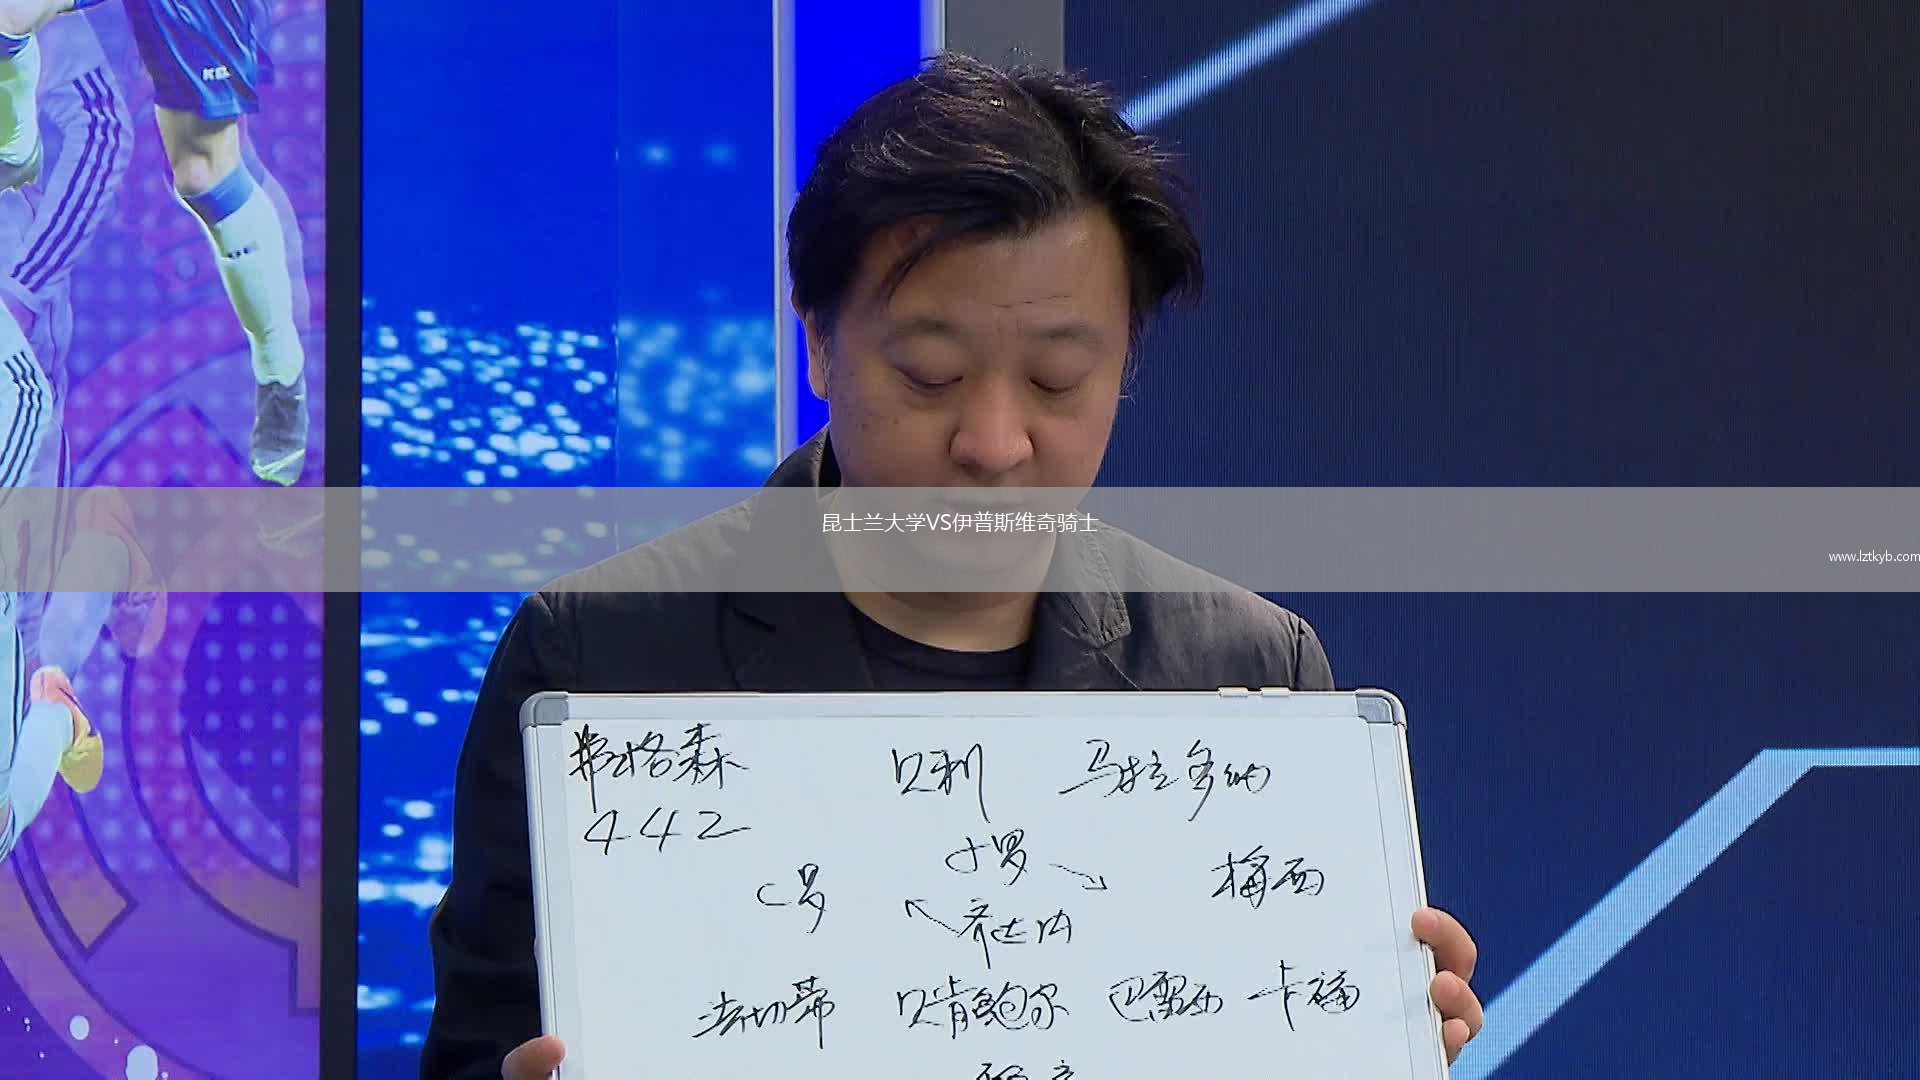 KEL
昆士兰大学VS伊普斯维奇骑士
www.lztkyb.com
弗格森 贝利 马拉多纳
442
小罗
C罗 梅西
齐达内
法切蒂 贝肯鲍尔 巴雷西 卡福